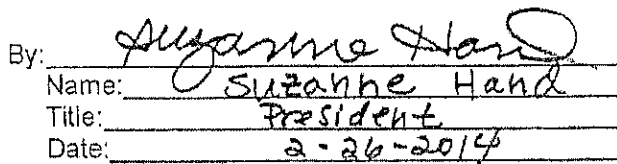 By: Suzanne Hand
Name: Suzanne Hand
Title: President
Date: 2-26-2014